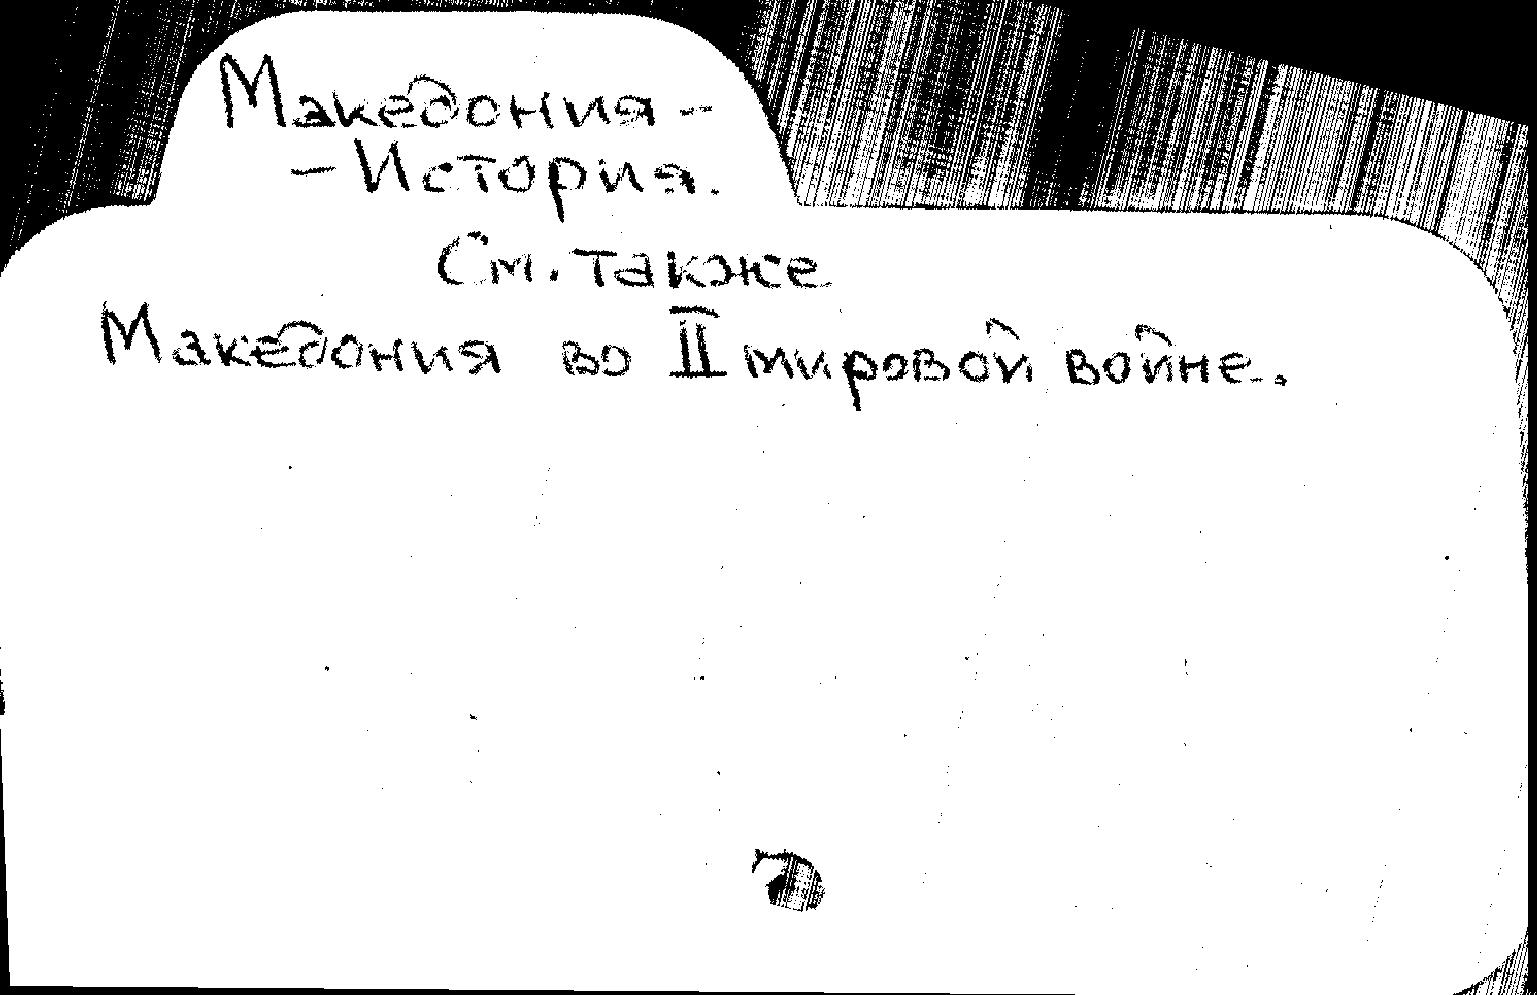 Македония -
- История.
См. также
Македония во II мировой войне.